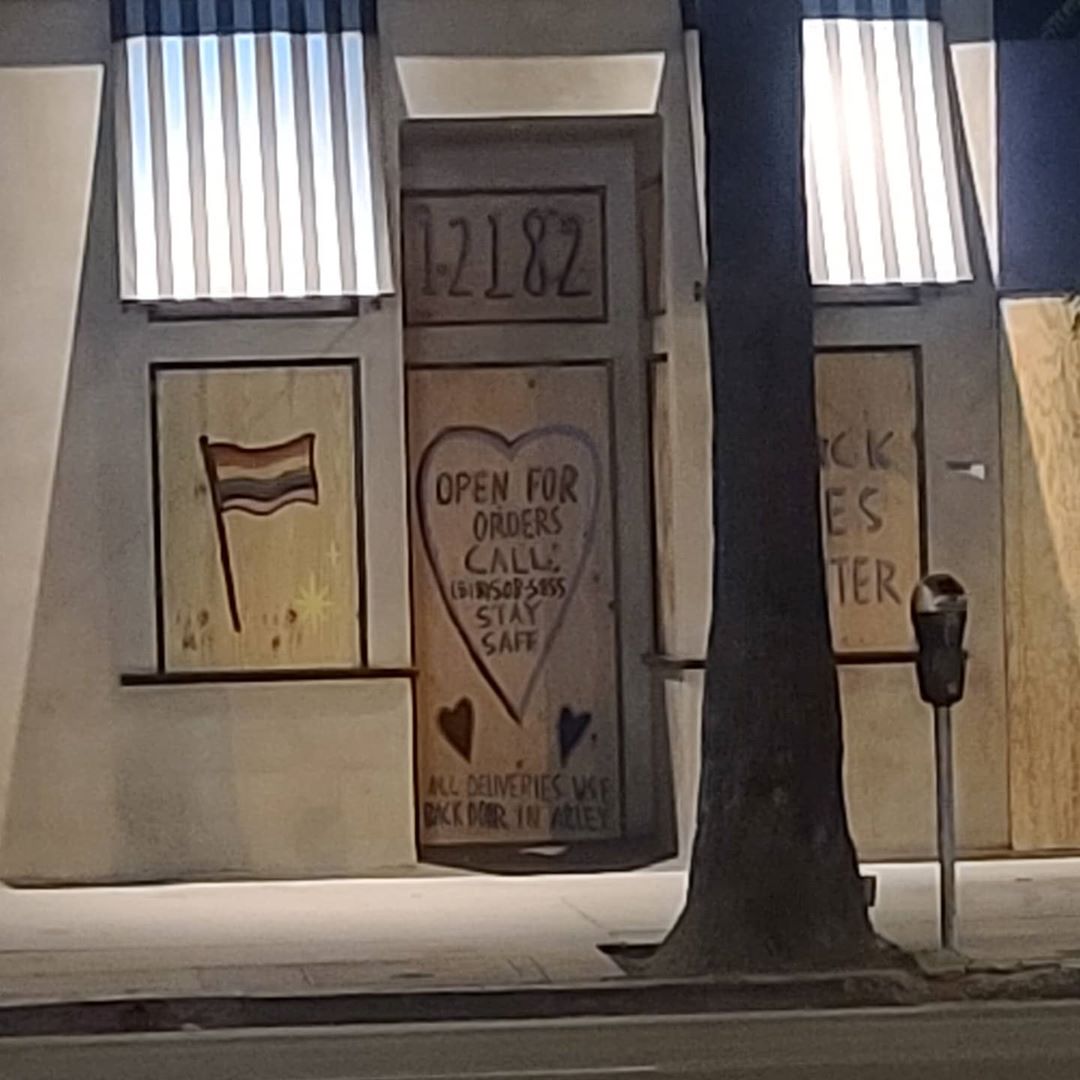 12182
OPEN FOR
ORDERS
CALL:
STAY
SAFE
ALL DELIVERIES USE
BACK DOOR IN ALLEY
CK
ES
TER